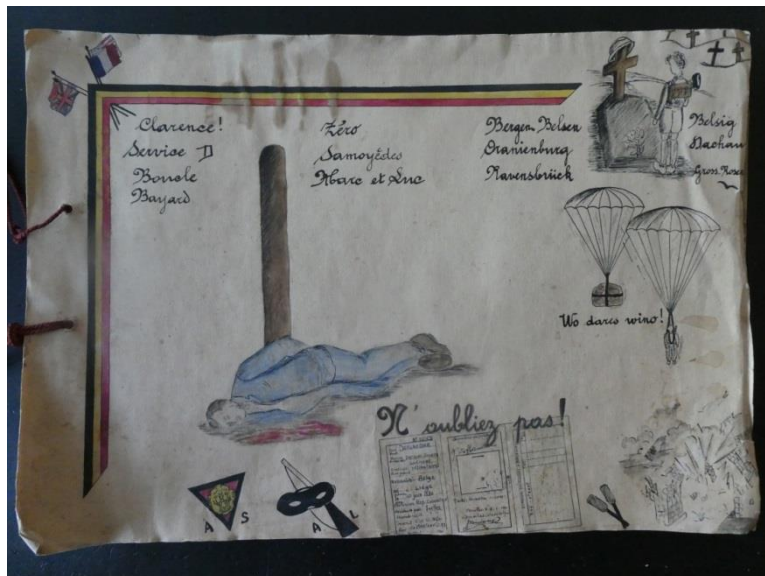 Clarence!
Service D
Boucle
Bayard
Zéro
Samoyèdes
Marc et Luc
Bergen Belsen
Oranienburg
Ravensbrück
Belsig
Dachau
Gross. Rosen
Wo dares wins!
N'oubliez pas!
A S
A L